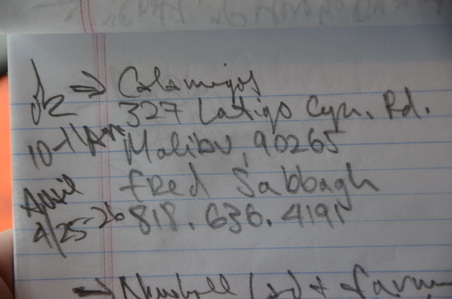 → Calamigos
327 Latigo Cyn. Rd.
10-11AM Malibu, 90265
April Fred Sabbagh
4/25-26 818.636.4191
→ Newhall +